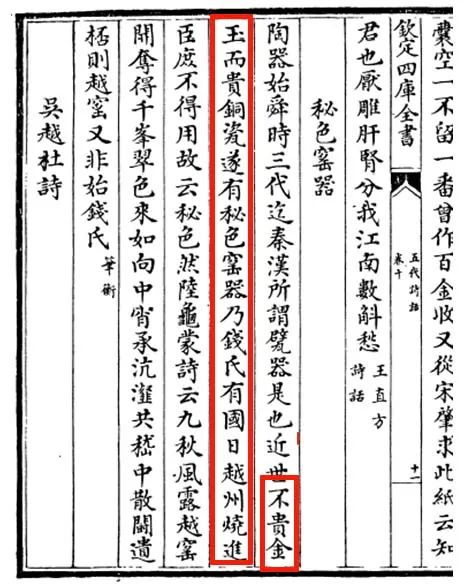 囊空一不留一番曾作百金收又從宋肇求此紙云知
欽定四庫全書
五代詩話
卷十
十一
君也厭雕肝腎分我江南數斛愁
王直方
詩話
秘色窑器
陶器始舜時三代迄秦漢所謂甓器是也近世不貴金
玉而貴銅瓷遂有秘色窑器乃錢氏有國日越州燒進
臣庶不得用故云秘色然陸龜蒙詩云九秋風露越窑
開奪得千峯翠色來如向中宵承沆瀣共嵇中散鬭遺
桮則越窑又非始錢氏
筆衡
吳越杜詩